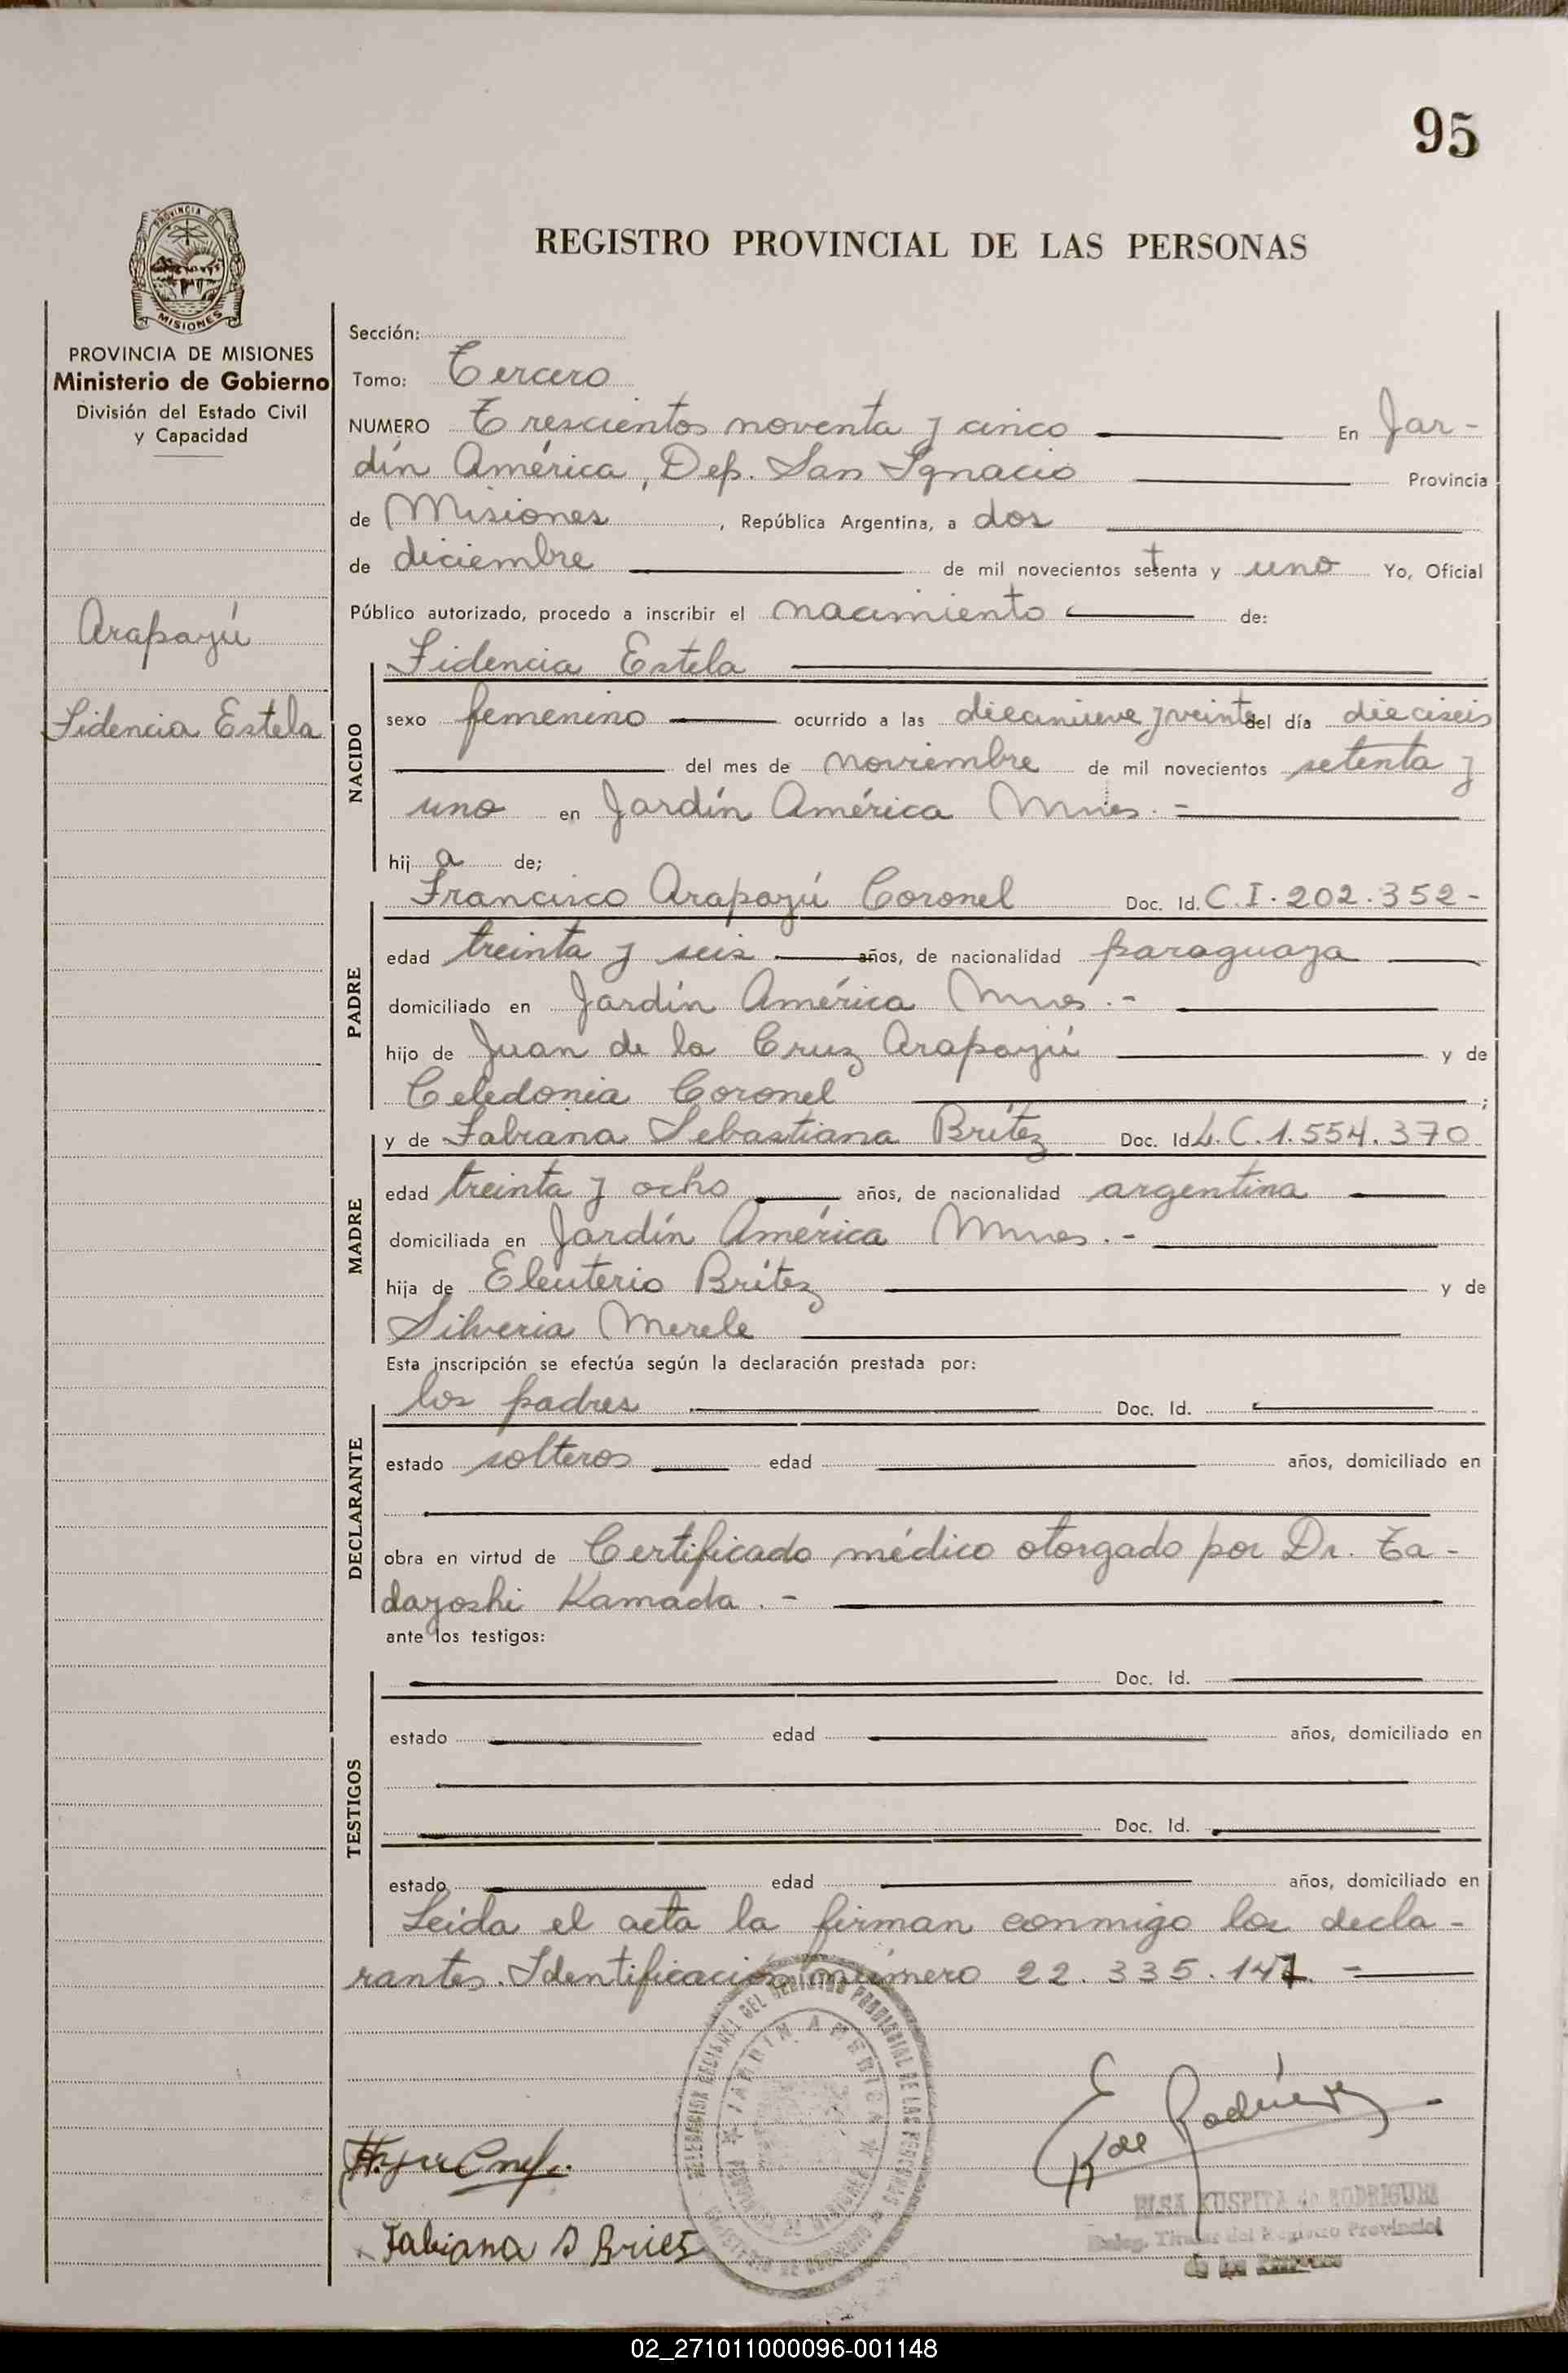 95
PROVINCIA DE
MISIONES
REGISTRO PROVINCIAL DE LAS PERSONAS
PROVINCIA DE MISIONES
Ministerio de Gobierno
División del Estado Civil
y Capacidad
Arapayú
Fidencia Estela
Sección:
Tomo: Tercero
NUMERO Trescientos noventa y cinco En Jar-
dín América, Dep. San Ignacio Provincia
de Misiones, República Argentina, a dos
de diciembre de mil novecientos setenta y uno Yo, Oficial
Público autorizado, procedo a inscribir el nacimiento de:
NACIDO
Fidencia Estela
sexo femenino ocurrido a las diecinueve y veinte del día dieciseis
del mes de noviembre de mil novecientos setenta y
uno en Jardín América Mnes.-
hij a de;
PADRE
Francisco Arapayú Coronel Doc. Id. C.I. 202.352-
edad treinta y seis años, de nacionalidad paraguaya
domiciliado en Jardín América Mnes.-
hijo de Juan de la Cruz Arapayú y de
Celedonia Coronel ;
MADRE
y de Fabiana Sebastiana Brítez Doc. Id L.C. 1.554.370
edad treinta y ocho años, de nacionalidad argentina
domiciliada en Jardín América Mnes.-
hija de Eleuterio Brítez y de
Silveria Merele
Esta inscripción se efectúa según la declaración prestada por:
DECLARANTE
los padres Doc. Id.
estado solteros edad años, domiciliado en
obra en virtud de Certificado médico otorgado por Dr. Ta-
dayoshi Kamada.-
ante los testigos:
TESTIGOS
Doc. Id.
estado edad años, domiciliado en
Doc. Id.
estado edad años, domiciliado en
Leída el acta la firman conmigo los decla-
rantes. Identificación número 22.335.147.-
DELEGACION DEL REGISTRO PROVINCIAL DE LAS PERSONAS
JARDIN AMERICA
E K de Rodríguez
Fabiana S Brites
ELSA KUSPITA de RODRIGUEZ
Deleg. Titular del Registro Provincial
de las Personas
02_271011000096-001148